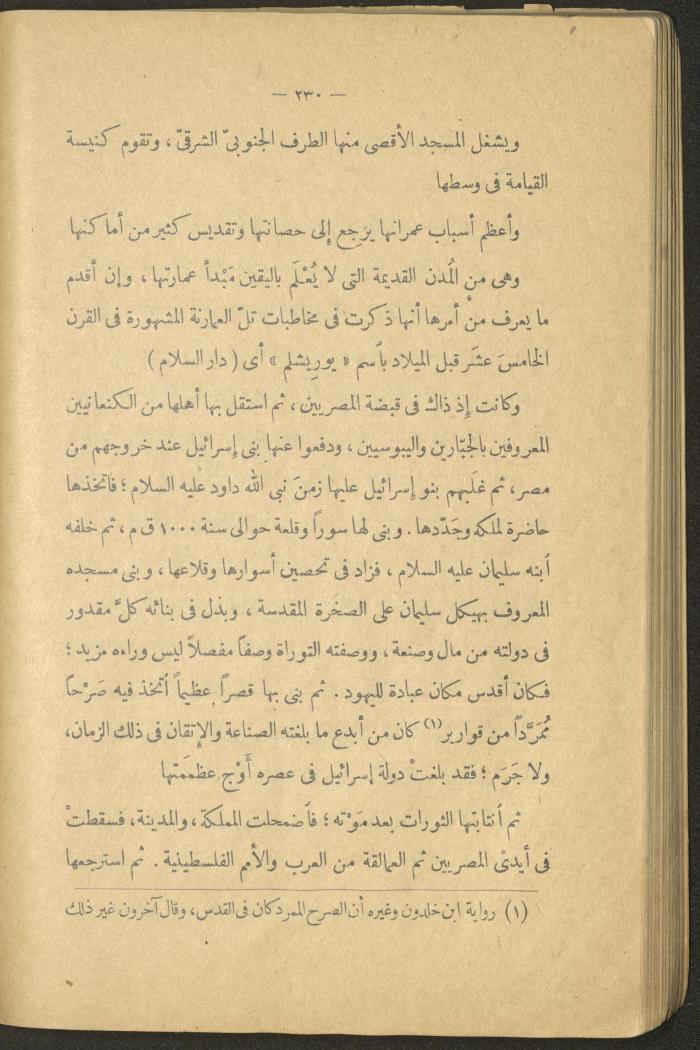 — ٢٣٠ —
ويشغل المسجد الأقصى منها الطرف الجنوبىّ الشرقىّ ، وتقوم كنيسة
القيامة فى وسطها
وأعظم أسباب عمرانها يرجع إلى حصانتها وتقديس كثير من أماكنها
وهى من المُدن القديمة التى لا يُعْلَم باليقين مَبْدأ عمارتها ، وإن أقدم
ما يعرف منْ أمرها أنها ذكرت فى مخاطبات تلّ العمارنة المشهورة فى القرن
الخامسَ عشَر قبل الميلاد بأسم « يوريشلم » أى ( دار السلام )
وكانت إذ ذاك فى قبضة المصريين ، ثم استقل بها أهلها من الكنعانيين
المعروفين بالجبّارين واليبوسيين ، ودفعوا عنها بنى إسرائيل عند خروجهم من
مصر ، ثم غلَبهم بنو إسرائيل عليها زمنَ نبى الله داود عليه السلام ؛ فاتخذها
حاضرة لملكه وجَدّدها . وبنى لها سوراً وقلعة حوالى سنة ١٠٠٠ ق م ، ثم خلفه
أبنه سليمان عليه السلام ، فزاد فى تحصين أسوارها وقلاعها ، وبنى مسجده
المعروف بهيكل سليمان على الصخرة المقدسة ، وبذل فى بنائه كلَّ مقدور
فى دولته من مال وصنعة ، ووصفته التوراة وصفاً مفصلاً ليس وراءه مزيد ؛
فكان أقدس مكان عبادة لليهود . ثم بنى بها قصراً عظيماً أتخذ فيه صَرْحاً
مُمَرَّداً من قوارير(١) كان من أبدع ما بلغته الصناعة والإتقان فى ذلك الزمان،
ولا جَرَم ؛ فقد بلغتْ دولة إسرائيل فى عصره أَوْج عظمَتها
ثم أنتابتها الثورات بعد مَوْته ؛ فأضمحلت المملكة ، والمدينة، فسقطتْ
فى أيدى المصريين ثم العمالقة من العرب والأمم الفلسطينية . ثم استرجعها
(١) رواية ابن خلدون وغيره أن الصرح الممرد كان فى القدس، وقال آخرون غير ذلك